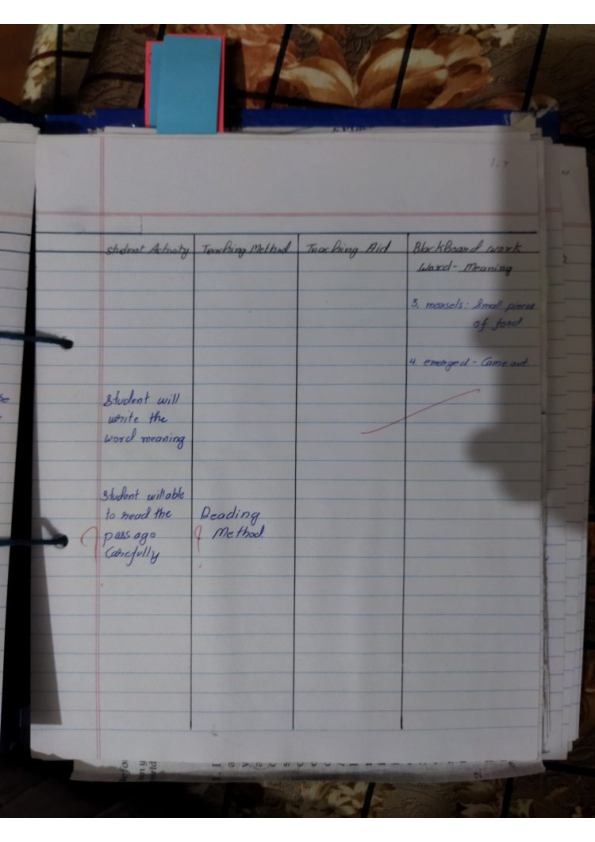 Student Activity
Teaching Method
Teaching Aid
Blackboard work
Word - Meaning
3. morsels: Small pieces
of food
4. emerged - Came out
Student will
write the
word meaning
Student will able
to read the
passage
Carefully
Reading
Method